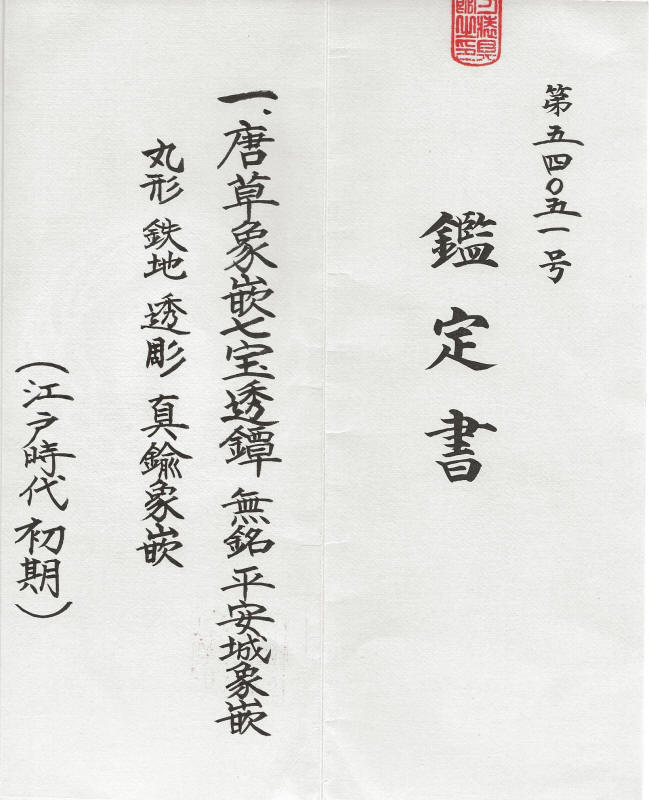 第五四〇五一号
鑑定書
一、唐草象嵌七宝透鐔 無銘 平安城象嵌
丸形 鉄地 透彫 真鍮象嵌
（江戸時代初期）